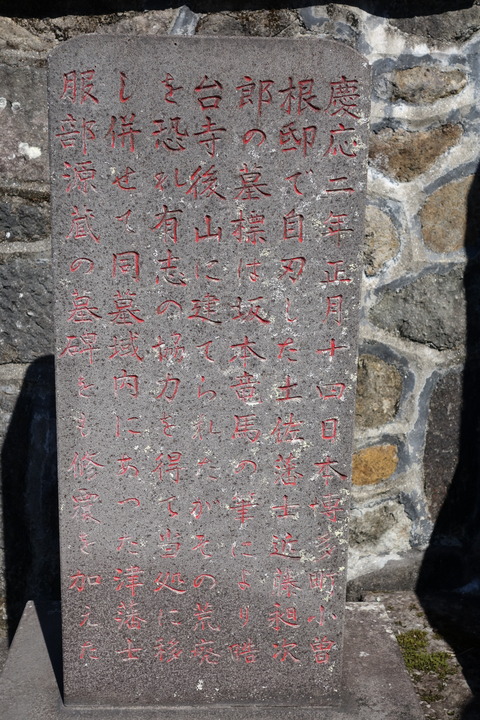 慶応二年正月十四日本博多町小曽
根邸で自刃した土佐藩士近藤昶次
郎の墓標は坂本竜馬の筆により晧
台寺後山に建てられたがその荒廃
を恐れ有志の協力を得て当処に移
し併せて同墓域内にあった津藩士
服部源蔵の墓碑とも修復を加えた